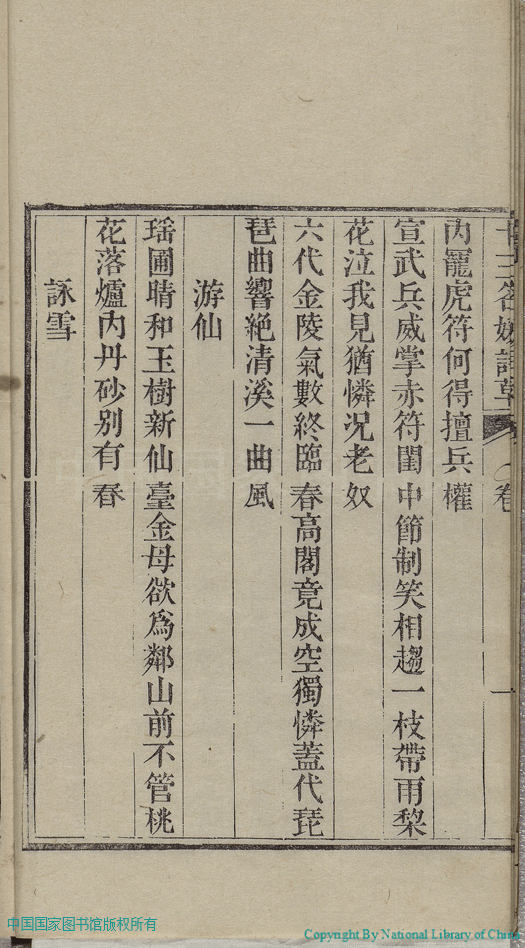 内寵虎符何得擅兵權
宣武兵威掌赤符閨中節制笑相趨一枝帶雨棃
花泣我見猶憐况老奴
六代金陵氣數終臨春高閣竟成空獨憐蓋代琵
琶曲響絶清溪一曲風
游仙
瑶圃晴和玉樹新仙臺金母欲爲鄰山前不管桃
花落爐內丹砂别有春
詠雪
中国国家图书馆版权所有
Copyright By National Library of China